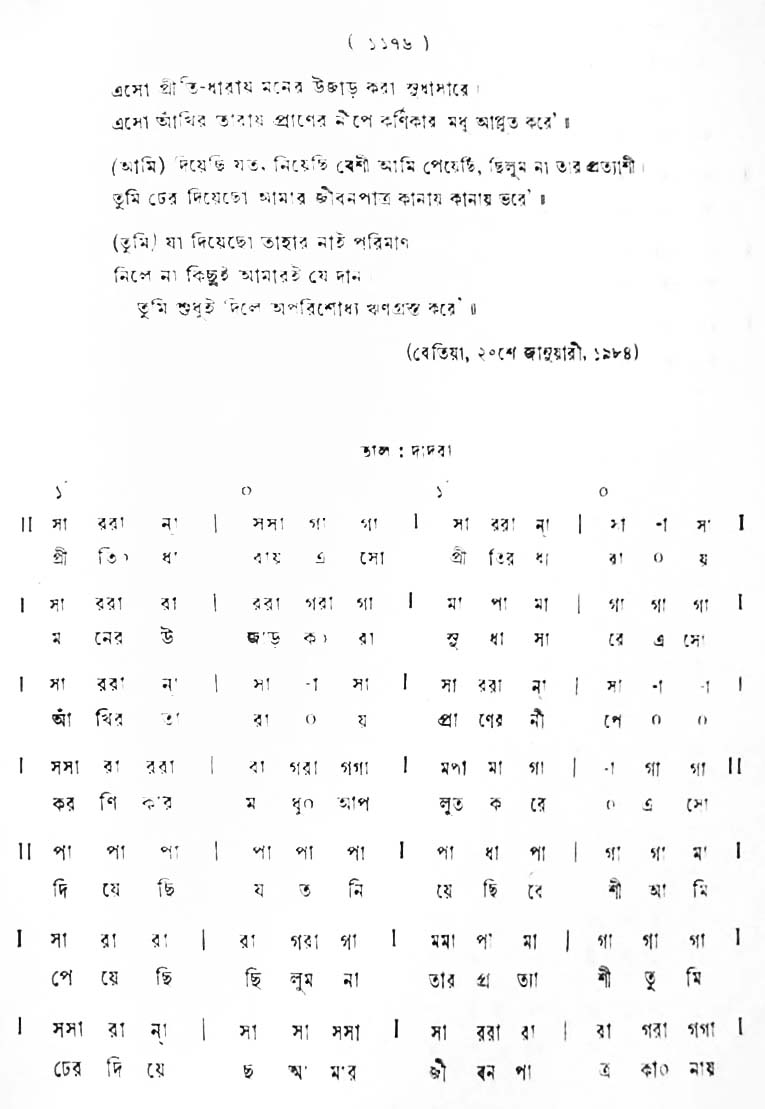 ( ১১৭৬ )
এসো প্রীতি-ধারায় মনের উজাড় করা সুধাসারে।
এসো আঁখির তারায় প্রাণের নীপে কর্ণিকার মধু আপ্লুত করে' ॥
(আমি) দিয়েছি যত, নিয়েছি বেশী আমি পেয়েছি, ছিলুম না তার প্রত্যাশী।
তুমি ঢের দিয়েছো আমার জীবনপাত্র কানায় কানায় ভরে' ॥
(তুমি) যা দিয়েছো তাহার নাই পরিমাণ
নিলে না কিছুই আমারই যে দান
তুমি শুধুই দিলে অপরিশোধ্য ঋণগ্রস্ত করে' ॥
(বেতিয়া, ২০শে জানুয়ারী, ১৯৮৪)
তাল : দাদরা
১´ ০ ১´ ০
II সা ররা ন্া | সসা গা গা I সা ররা ন্া | সা -া সা I
প্রী তি০ ধা রায় এ সো প্রী তির ধা রা ০ য়
I সা ররা রা | ররা গরা গা I মা পা মা | গা গা গা I
ম নের উ জাড় ক০ রা সু ধা সা রে এ সো
I সা ররা ন্া | সা -া সা I সা ররা ন্া | সা -া -া I
আঁ খির তা রা ০ য় প্রা ণের নী পে ০ ০
I সসা রা ররা | রা গরা গগা I মপা মা গা | -া গা গা II
কর ণি কার ম ধু০ আপ লুত ক রে ০ এ সো
II পা পা পা | পা পা পা I পা ধা পা | গা গা মা I
দি য়ে ছি য ত নি য়ে ছি বে শী আ মি
I সা রা রা | রা গরা গা I মমা পা মা | গা গা গা I
পে য়ে ছি ছি লুম না তার প্র ত্যা শী তু মি
I সসা রা ন্া | সা সা সসা I সা ররা রা | রা গরা গগা I
ঢের দি য়ে ছ আ মার জী বন পা ত্র কা০ নায়